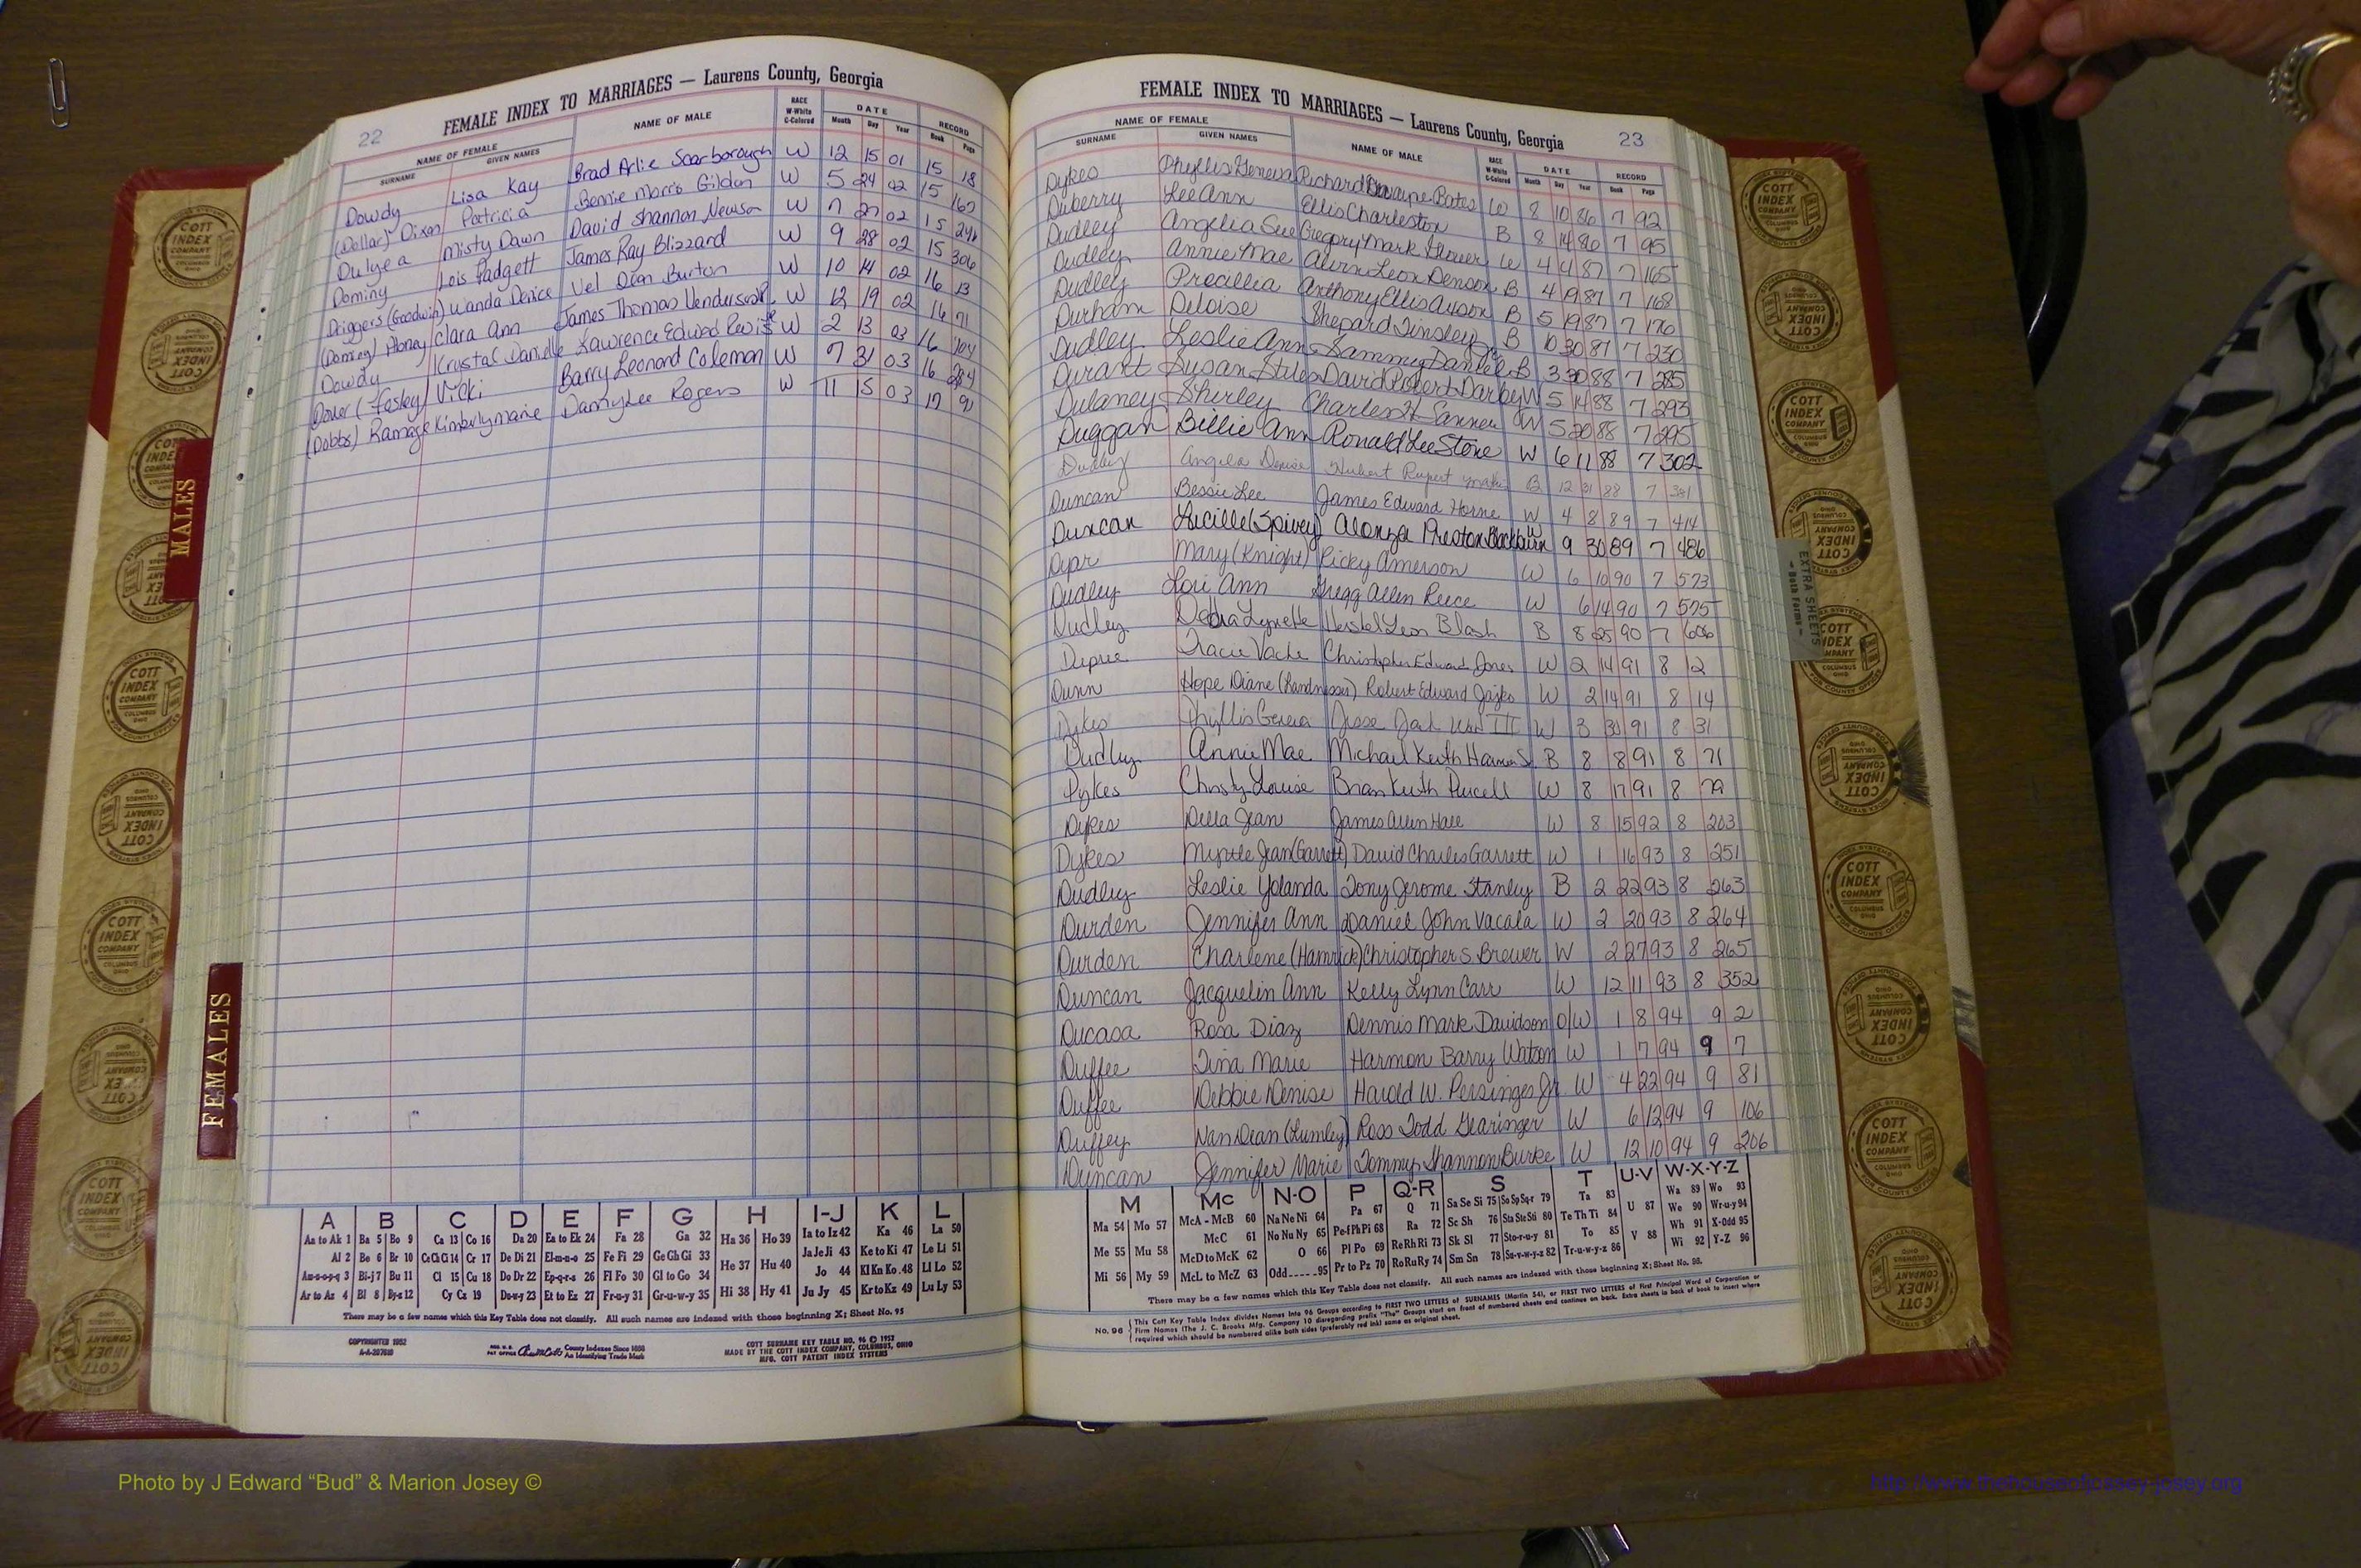 22
FEMALE INDEX TO MARRIAGES — Laurens County, Georgia
NAME OF FEMALE
SURNAME GIVEN NAMES NAME OF MALE RACE W-White C-Colored DATE Month Day Year RECORD Book Page
Dowdy Lisa Kay Brad Arlie Scarborough W 12 15 01 15 18
(Dollar) Dixon Patricia Bennie Morris W 5 24 02 15 167
Misty Dawn David Shannon W 7 27 02 15
Dominy Lois Padgett James Ray Blizzard W 9 28 02 15 306
Driggers (Goodwin) Wanda Denice Vel Dian Burton W 10 14 02 16 13
Clara Ann James Thomas W 12 19 02 16 71
Dowdy Krystal Danielle Lawrence Edward W 2 13 03 16 104
Vicki Barry Leonard Coleman W 7 31 03 16
(Dobbs) Ramage Kimberly marie Danny Lee Rogers W 11 15 03 17
MALES
FEMALES
A B C D E F G H I-J K L
Aa to Ak 1 Ba 5 Bo 9 Ca 13 Co 16 Da 20 Ea to Ek 24 Fa 28 Ga 32 Ha 36 Ho 39 Ia to Iz 42 Ka 46 La 50
Al 2 Be 6 Br 10 CeChCi 14 Cr 17 De Di 21 El-m-n-o 25 Fe Fi 29 Ge Gh Gi 33 He 37 Hu 40 Ja Je Ji 43 Ke to Ki 47 Le Li 51
Am-n-o-p-q 3 Bi-j 7 Bu 11 Cl 15 Cu 18 Do Dr 22 Ep-q-r-s 26 Fl Fo 30 Gl to Go 34 Jo 44 Kl Kn Ko 48 Ll Lo 52
Ar to Az 4 Bl 8 By-z 12 Cy Cz 19 Du-w-y 23 Et to Ez 27 Fr-u-y 31 Gr-u-w-y 35 Hi 38 Hy 41 Ju Jy 45 Kr to Kz 49 Lu Ly 53
There may be a few names which this Key Table does not classify. All such names are indexed with those beginning X; Sheet No. 95
COPYRIGHTED 1952
County Indexes Since 1888
An Identifying Trade Mark
COTT SURNAME KEY TABLE NO. 96 © 1952
MADE BY THE COTT INDEX COMPANY, COLUMBUS, OHIO
MFG. COTT PATENT INDEX SYSTEMS
FEMALE INDEX TO MARRIAGES — Laurens County, Georgia
23
NAME OF FEMALE
SURNAME GIVEN NAMES NAME OF MALE RACE W-White C-Colored DATE Month Day Year RECORD Book Page
Dykes Phyllis Geneva Richard Dwayne Bates W 8 10 86 7 92
Duberry Lee Ann Ellis Charleston B 8 14 86 7 95
Dudley Angelia Sue Gregory Mark W 4 4 87 7 165
Dudley Annie Mae Alvin Leon Denson B 4 19 87 7 168
Dudley Precillia Anthony Ellis B 5 19 87 7 176
Durham Deloise Shepard Tinsley B 10 30 87 7 230
Dudley Leslie Ann Sammy Daniel B 3 30 88 7 285
Durant Susan Stiles David Robert Darby W 5 14 88 7 293
Dulaney Shirley Charles H Sanner W 5 20 88 7 295
Duggan Billie Ann Ronald Lee Stone W 6 11 88 7 302
Dudley Angela Denise Hubert Rupert B 12 31 88 7
Duncan Bessie Lee James Edward Horne W 4 8 89 7 414
Duncan Lucille (Spivey) Alonza Preston W 9 30 89 7 486
Mary (Knight) Ricky Amerson W 6 10 90 7 573
Dudley Lori Ann Gregg Allen Reece W 6 14 90 7 575
Dudley Dedra Lynette Leon Blash B 8 25 90 7 606
Dupree Tracie Christopher Edward Jones W 2 14 91 8 12
Dunn Hope Diane Robert Edward W 2 14 91 8 14
Dykes Phyllis Geneva Jesse III W 3 30 91 8 31
Dudley Annie Mae Michael Keith B 8 8 91 8 71
Dykes Christy Louise Brian Keith Purcell W 8 17 91 8 79
Dykes Della Jean James Allen Hall W 8 15 92 8 203
Dykes Myrtle Jean (Garrett) David Charles Garrett W 1 16 93 8 251
Dudley Leslie Yolanda Tony Jerome Stanley B 2 22 93 8 263
Durden Jennifer Ann Daniel John Vacala W 2 20 93 8 264
Durden Charlene (Hamrick) Christopher S. Brewer W 2 27 93 8 265
Duncan Jacquelin Ann Kelly Lynn Carr W 12 11 93 8 352
Ducasa Rosa Diaz Dennis Mark Davidson O/W 1 8 94 9 2
Duffee Tina Marie Harmon Barry Watson W 1 7 94 9 7
Duffee Debbie Denise Harold W. Persinger Jr W 4 22 94 9 81
Duffey Nan Dean (Lumley) Ross Todd Gearinger W 6 12 94 9 106
Duncan Jennifer Marie Tommy Shannon Burke W 12 10 94 9 206
EXTRA SHEETS
M Mc N-O P Q-R S T U-V W-X-Y-Z
Ma 54 Mo 57 McA - McB 60 Na Ne Ni 64 Pa 67 Q 71 Sa Se Si 75 So Sp Sq-r 79 Ta 83 U 87 Wa 89 Wo 93
Me 55 Mu 58 McC 61 No Nu Ny 65 Pe-f Ph Pi 68 Ra 72 Sc Sh 76 Sta Ste Sti 80 Te Th Ti 84 We 90 Wr-u-y 94
McD to McK 62 O 66 Pl Po 69 Re Rh Ri 73 Sk Sl 77 Sto-r-u-y 81 To 85 V 88 Wh 91 X-Odd 95
Mi 56 My 59 McL to McZ 63 Odd 95 Pr to Pz 70 Ro Ru Ry 74 Sm Sn 78 Su-v-w-y-z 82 Tr-u-w-y-z 86 Wi 92 Y-Z 96
There may be a few names which this Key Table does not classify. All such names are indexed with those beginning X; Sheet No. 95.
No. 96 This Cott Key Table Index divides Names Into 96 Groups according to FIRST TWO LETTERS of SURNAMES (Martin 54), or FIRST TWO LETTERS of First Principal Word of Corporation or
Firm Names (The J. C. Brooks Mfg. Company 10 disregarding prefix "The" Groups start on front of numbered sheets and continue on back. Extra sheets in back of book to insert where
required which should be numbered alike both sides (preferably red ink) same as original sheet.
COTT INDEX COMPANY COLUMBUS OHIO
Photo by J Edward “Bud” & Marion Josey ©
http://www.thehouseofjossey-josey.org